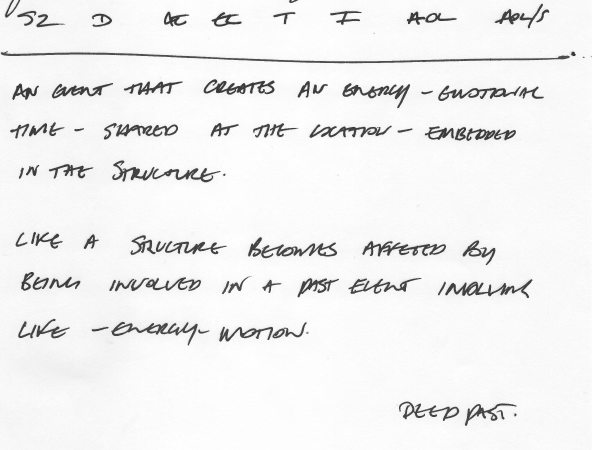 S2 D AE EE T I AOL AOL/S
AN EVENT THAT CREATES AN ENERGY - EMOTIONAL
TIME - SHARED AT THE LOCATION - EMBEDDED
IN THE STRUCTURE.
LIKE A STRUCTURE BECOMES AFFETED BY
BEING INVOLVED IN A PAST EVENT INVOLVING
LIKE - ENERGY - MOTION.
DEED PAST.